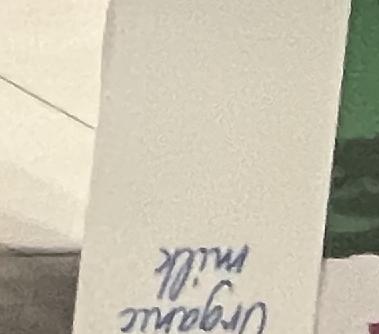 Organic
milk